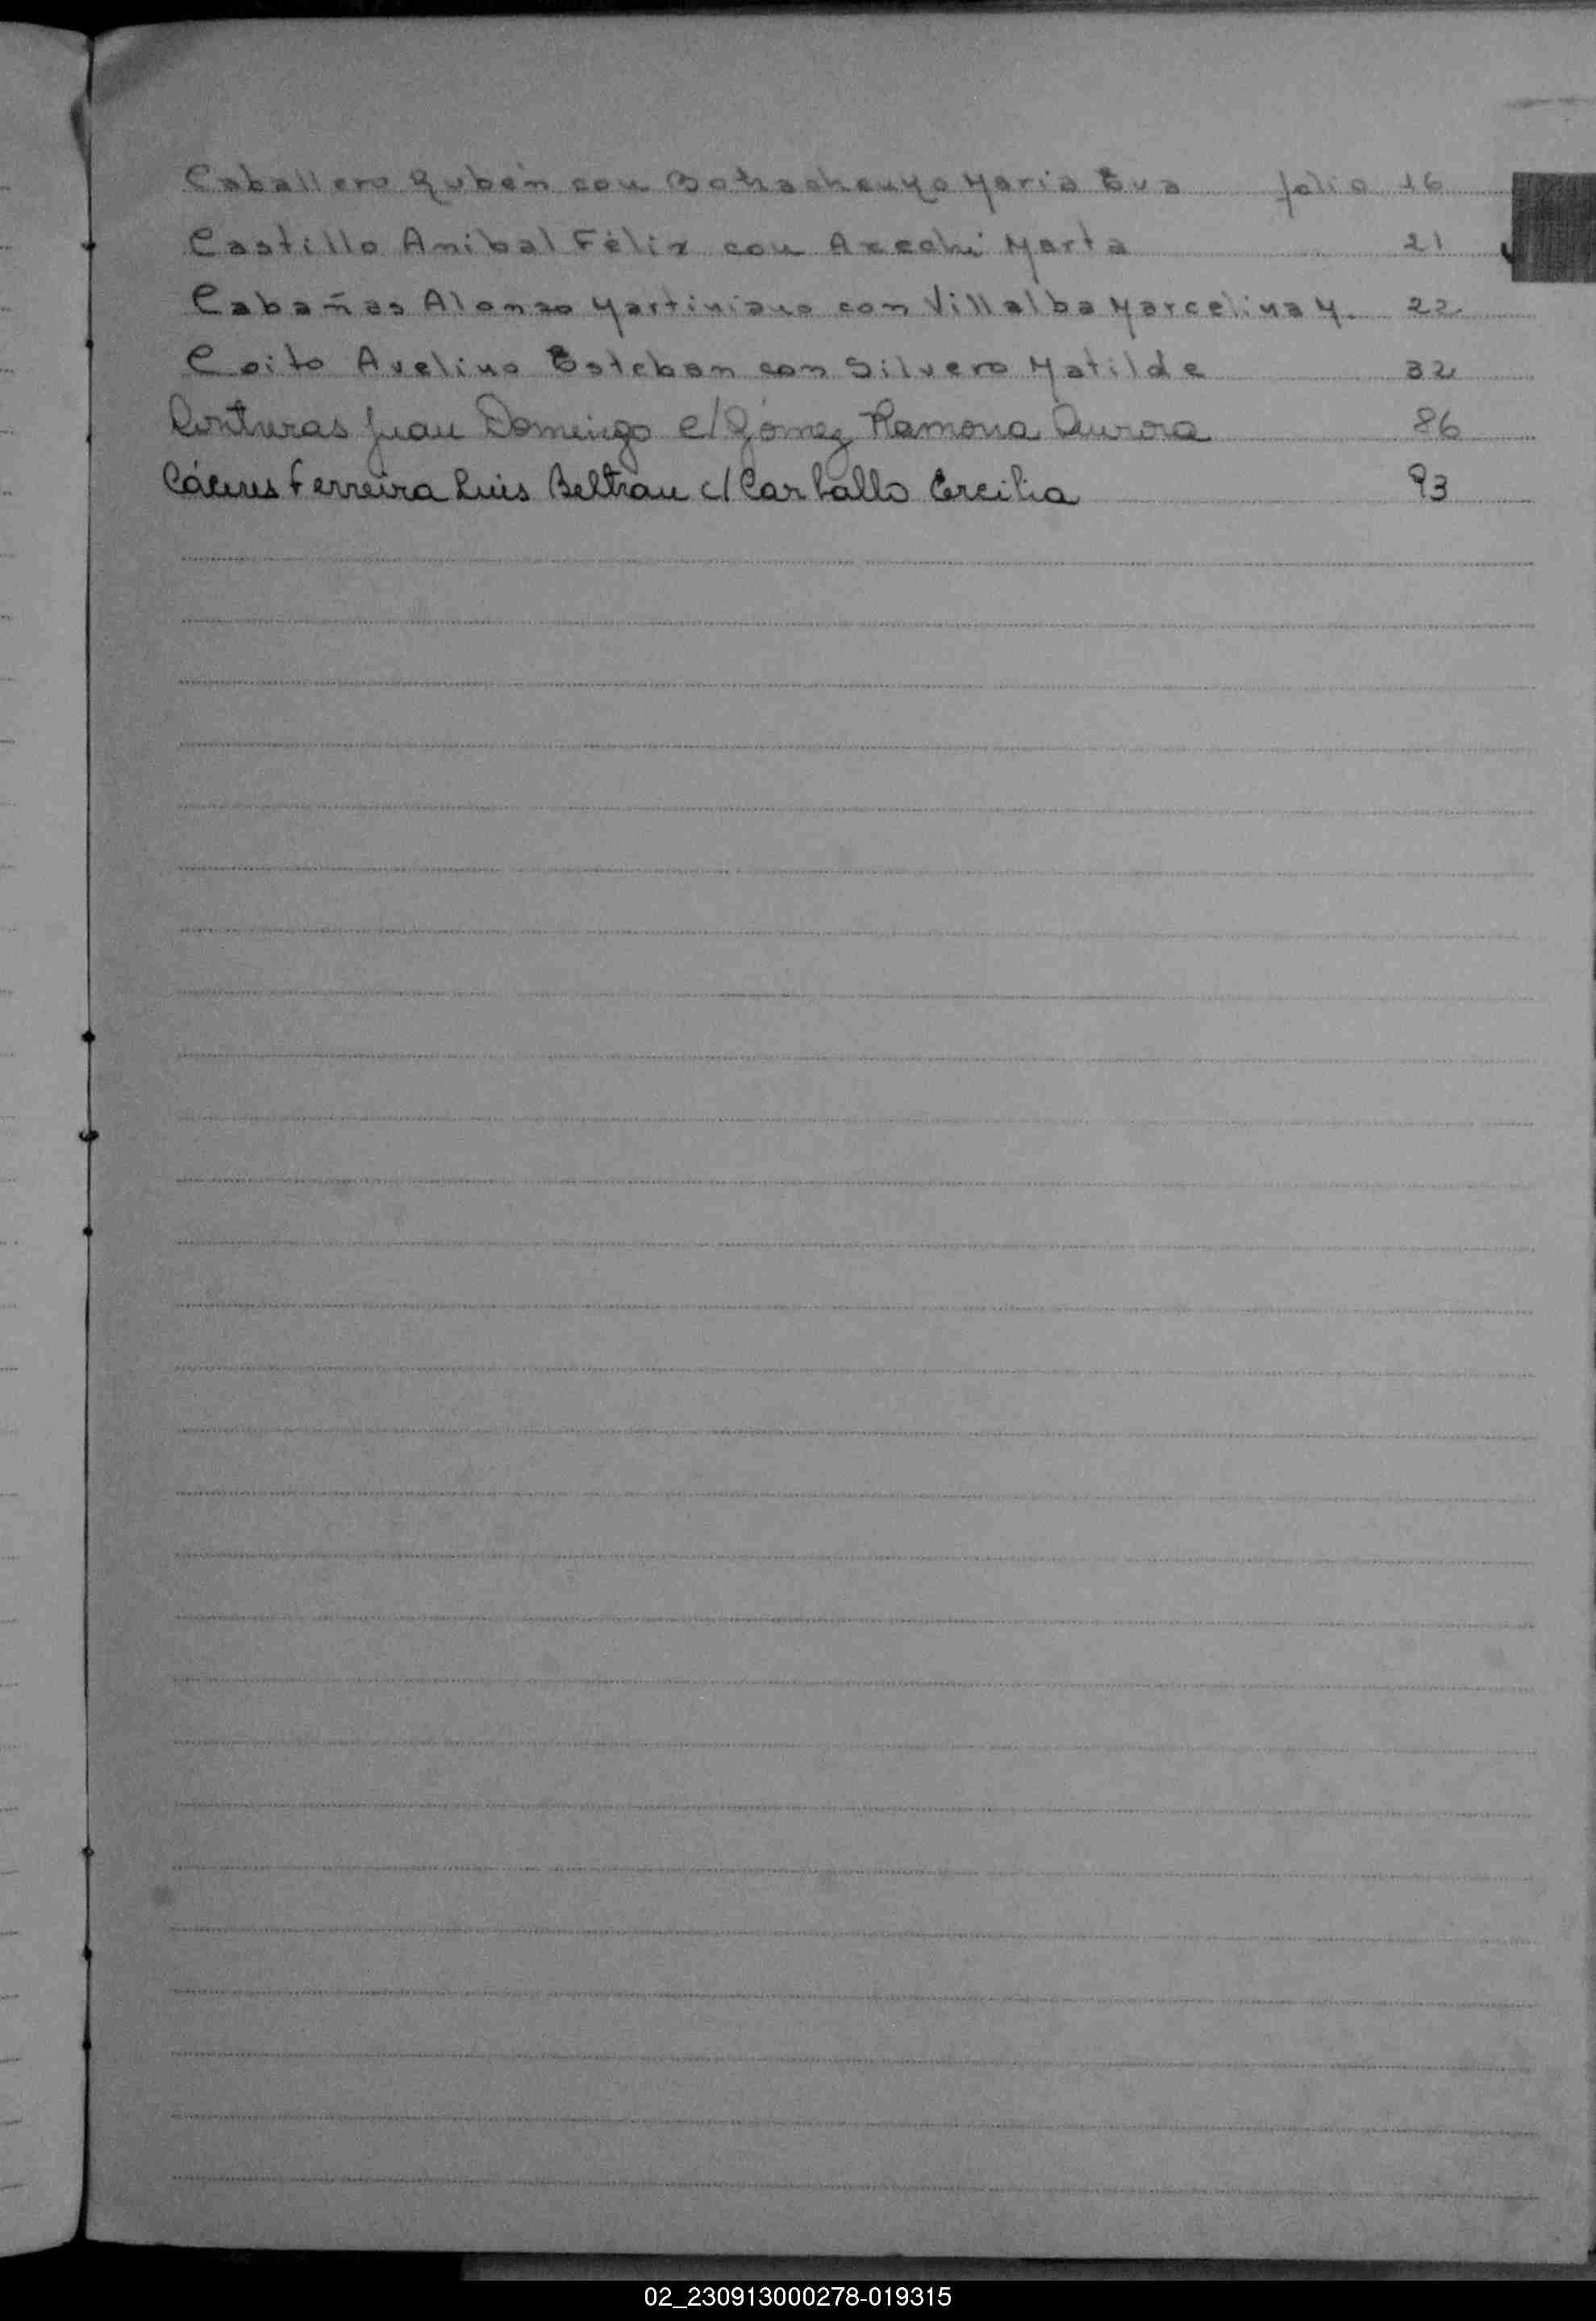 Caballero Rubén con María Eva folio 16
Castillo Anibal Félix con Marta 21
Cabañas Alonzo Martiniano con Villalba Marcelina M. 22
Coito Avelino Esteban con Silvero Matilde 32
Contreras Juan Domingo c/ Gómez Ramona Aurora 86
Cáceres Ferreira Luis Beltrau c/ Carballo Ercilia 93
02_230913000278-019315